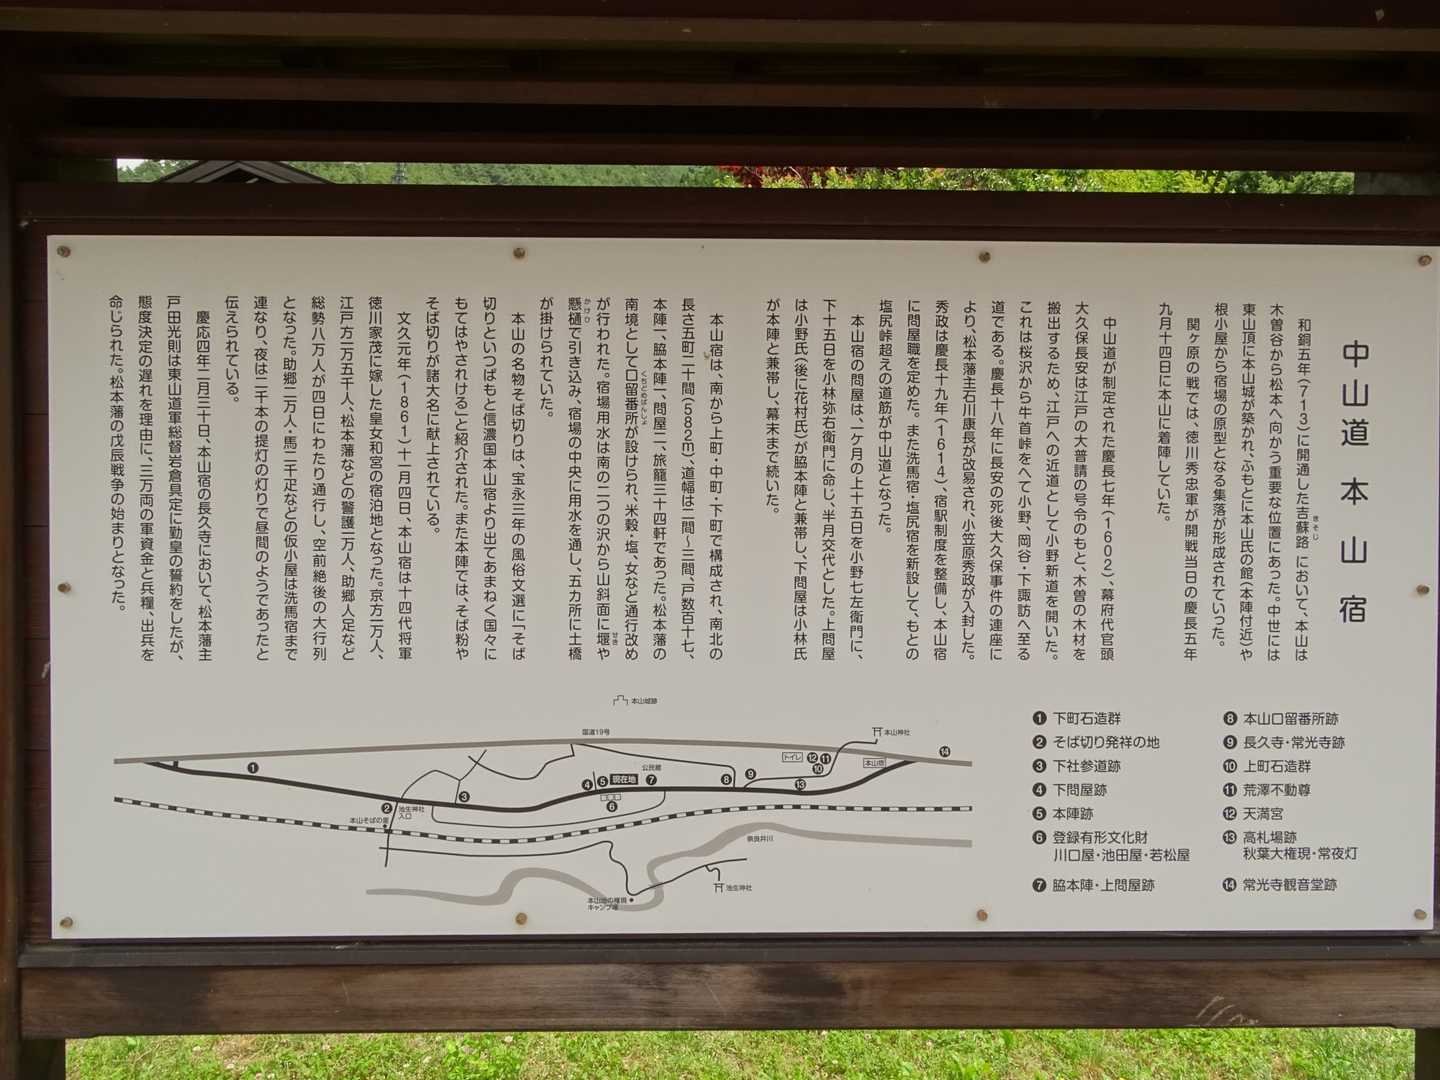 中山道 本山宿
和銅五年(713)に開通した吉蘇路 において、本山は
きそじ
木曽谷から松本へ向かう重要な位置にあった。中世には
東山頂に本山城が築かれ、ふもとに本山氏の館(本陣付近)や
根小屋から宿場の原型となる集落が形成されていった。
関ヶ原の戦では、徳川秀忠軍が開戦当日の慶長五年
九月十四日に本山に着陣していた。
中山道が制定された慶長七年(1602)、幕府代官頭
大久保長安は江戸の大普請の号令のもと、木曽の木材を
搬出するため、江戸への近道として小野新道を開いた。
これは桜沢から牛首峠をへて小野、岡谷・下諏訪へ至る
道である。慶長十八年に長安の死後大久保事件の連座に
より、松本藩主石川康長が改易され、小笠原秀政が入封した。
秀政は慶長十九年(1614)、宿駅制度を整備し、本山宿
に問屋職を定めた。また洗馬宿・塩尻宿を新設して、もとの
塩尻峠超えの道筋が中山道となった。
本山宿の問屋は、一ケ月の上十五日を小野七左衛門に、
下十五日を小林弥右衛門に命じ、半月交代とした。上問屋
は小野氏(後に花村氏)が脇本陣と兼帯し、下問屋は小林氏
が本陣と兼帯し、幕末まで続いた。
本山宿は、南から上町・中町・下町で構成され、南北の
長さ五町二十間(582m)、道幅は二間～三間、戸数百十七、
本陣一、脇本陣一、問屋二、旅籠三十四軒であった。松本藩の
南境として口留番所が設けられ、米穀・塩、女など通行改め
くちどめばんしょ
が行われた。宿場用水は南の二つの沢から山斜面に堰や
せぎ
懸樋で引き込み、宿場の中央に用水を通し、五カ所に土橋
かけひ
が掛けられていた。
本山の名物そば切りは、宝永三年の風俗文選に「そば
切りといつぱもと信濃国本山宿より出てあまねく国々に
もてはやされける」と紹介された。また本陣では、そば粉や
そば切りが諸大名に献上されている。
文久元年(1861)十一月四日、本山宿は十四代将軍
徳川家茂に嫁した皇女和宮の宿泊地となった。京方一万人、
江戸方一万五千人、松本藩などの警護一万人、助郷人足など
総勢八万人が四日にわたり通行し、空前絶後の大行列
となった。助郷二万人・馬二千疋などの仮小屋は洗馬宿まで
連なり、夜は二千本の提灯の灯りで昼間のようであったと
伝えられている。
慶応四年二月三十日、本山宿の長久寺において、松本藩主
戸田光則は東山道軍総督岩倉具定に勤皇の誓約をしたが、
態度決定の遅れを理由に、三万両の軍資金と兵糧、出兵を
命じられた。松本藩の戊辰戦争の始まりとなった。
本山城跡
国道19号
本山神社
トイレ
本山宿
公民館
現在地
池生神社
入口
本山そばの里
奈良井川
池生神社
キャンプ場
❶ 下町石造群
❷ そば切り発祥の地
❸ 下社参道跡
❹ 下問屋跡
❺ 本陣跡
❻ 登録有形文化財
川口屋・池田屋・若松屋
❼ 脇本陣・上問屋跡
❽ 本山口留番所跡
❾ 長久寺・常光寺跡
❿ 上町石造群
⓫ 荒澤不動尊
⓬ 天満宮
⓭ 高札場跡
秋葉大権現・常夜灯
⓮ 常光寺観音堂跡